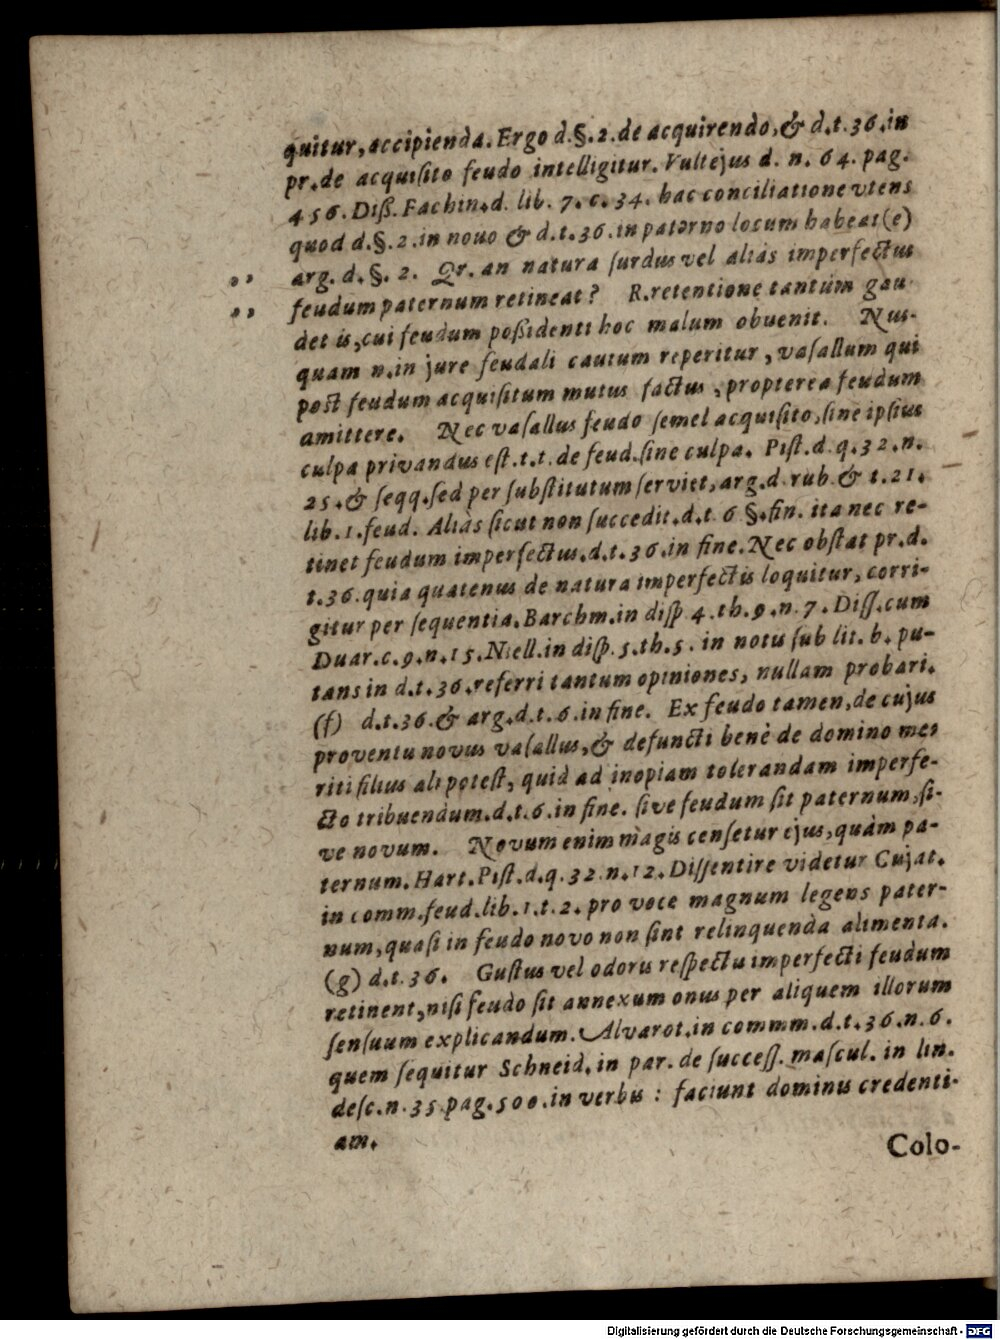 quitur, accipienda. Ergo d.§.2. de acquirendo, & d.t.36. in
pr. de acquiſito feudo intelligitur. Vultejus d. n. 64. pag.
456. Diß. Fachin. d. lib. 7. c. 34. hac conciliatione vtens
quod d.§.2. in nouo & d.t.36. in paterno locum habeat (e)
arg. d. §. 2. Qr. an natura ſurdus vel aliàs imperfectus
feudum paternum retineat? R. retentione tantùm gau-
det is, cui feudum poßidenti hoc malum obuenit. Nus-
quam n. in jure feudali cautum reperitur, vaſallum qui
poſt feudum acquiſitum mutus factus, propterea feudum
amittere. Nec vaſallus feudo ſemel acquiſito, ſine ipſius
culpa privandus eſt. t.t. de feud. ſine culpa. Piſt. d. q. 32. n.
25. & ſeqq. ſed per ſubſtitutum ſerviet, arg. d. rub. & t. 21.
lib. 1. feud. Aliàs ſicut non ſuccedit. d. t. 6 §. fin. ita nec re-
tinet feudum imperfectus. d. t. 36. in fine. Nec obſtat pr. d.
t. 36. quia quatenus de natura imperfectis loquitur, corri-
gitur per ſequentia. Barchm. in diſp. 4. th. 9. n. 7. Diſſ. cum
Duar. c. 9. n. 15. Niell. in diſp. 5. th. 5. in notu ſub lit. b. pu-
tans in d. t. 36. referri tantum opiniones, nullam probari.
(f) d. t. 36. & arg. d. t. 6. in fine. Ex feudo tamen, de cujus
proventu novus vaſallus, & defuncti benè de domino me-
riti filius ali poteſt, quid ad inopiam tolerandam imperfe-
cto tribuendum. d. t. 6. in fine. ſive feudum ſit paternum, ſi-
ve novum. Novum enim magis cenſetur ejus, quàm pa-
ternum. Hart. Piſt. d. q. 32. n. 12. Diſſentire videtur Cujat.
in comm. feud. lib. 1. t. 2. pro voce magnum legens pater-
num, quaſi in feudo novo non ſint relinquenda alimenta.
(g) d. t. 36. Guſtus vel odorus reſpectu imperfecti feudum
retinent, niſi feudo ſit annexum onus per aliquem illorum
ſenſuum explicandum. Alvarot. in commm. d. t. 36. n. 6.
quem ſequitur Schneid. in par. de ſucceſſ. maſcul. in lin.
deſc. n. 35. pag. 500. in verbis : faciunt dominus credenti-
am.
Colo-
Digitalisierung gefördert durch die Deutsche Forschungsgemeinschaft - DFG